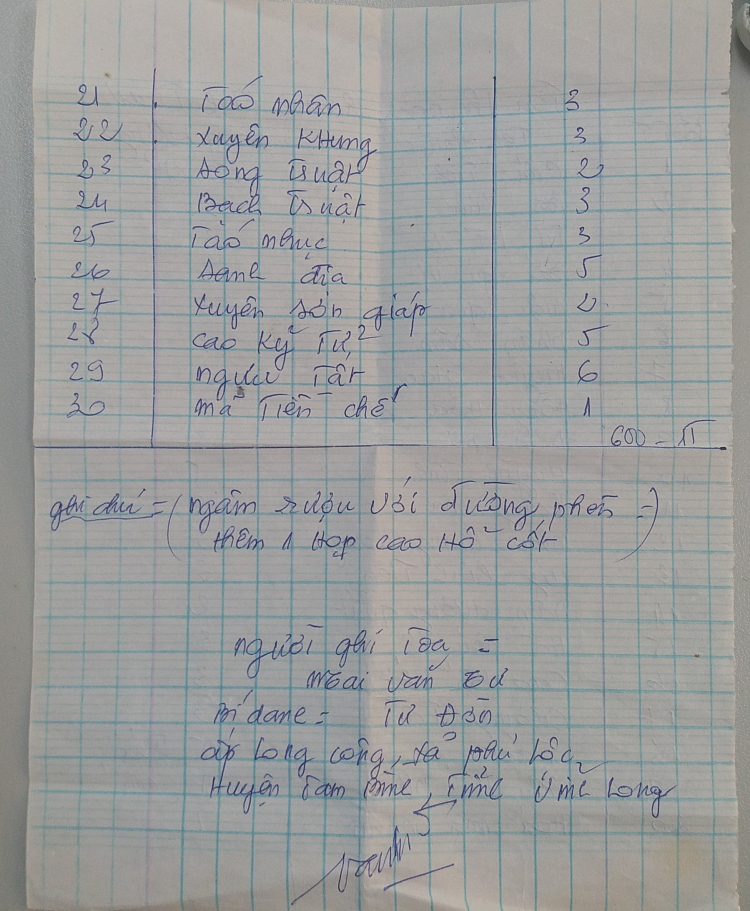 21 . Táo nhân 3
22 . Xuyên Khung 3
23 sông truật 2
24 Bạch truật 3
25 Táo nhục 3
26 sanh địa 5
27 Xuyên sơn giáp 2
28 cao kỷ Tử 5
29 ngưu Tất 6
30 mã Tiền chế 1
600 -
ghi chú = (ngâm rượu với đường phèn =)
thêm 1 Hộp cao Hổ cốt
người ghi Toa =
mai văn
Bí danh = Tư Đờn
ấp Long công, xã phú Lộc,
Huyện Tam Bình, Tỉnh Vĩnh Long